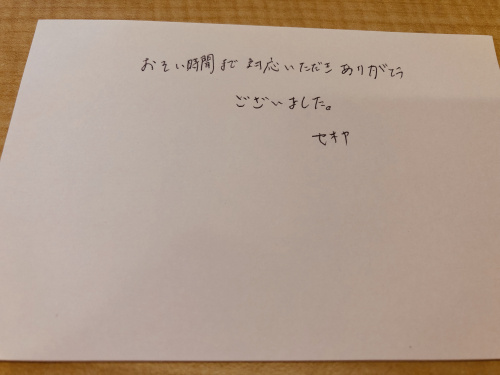 おそい時間まで対応いただきありがとう
ございました。
セキヤ